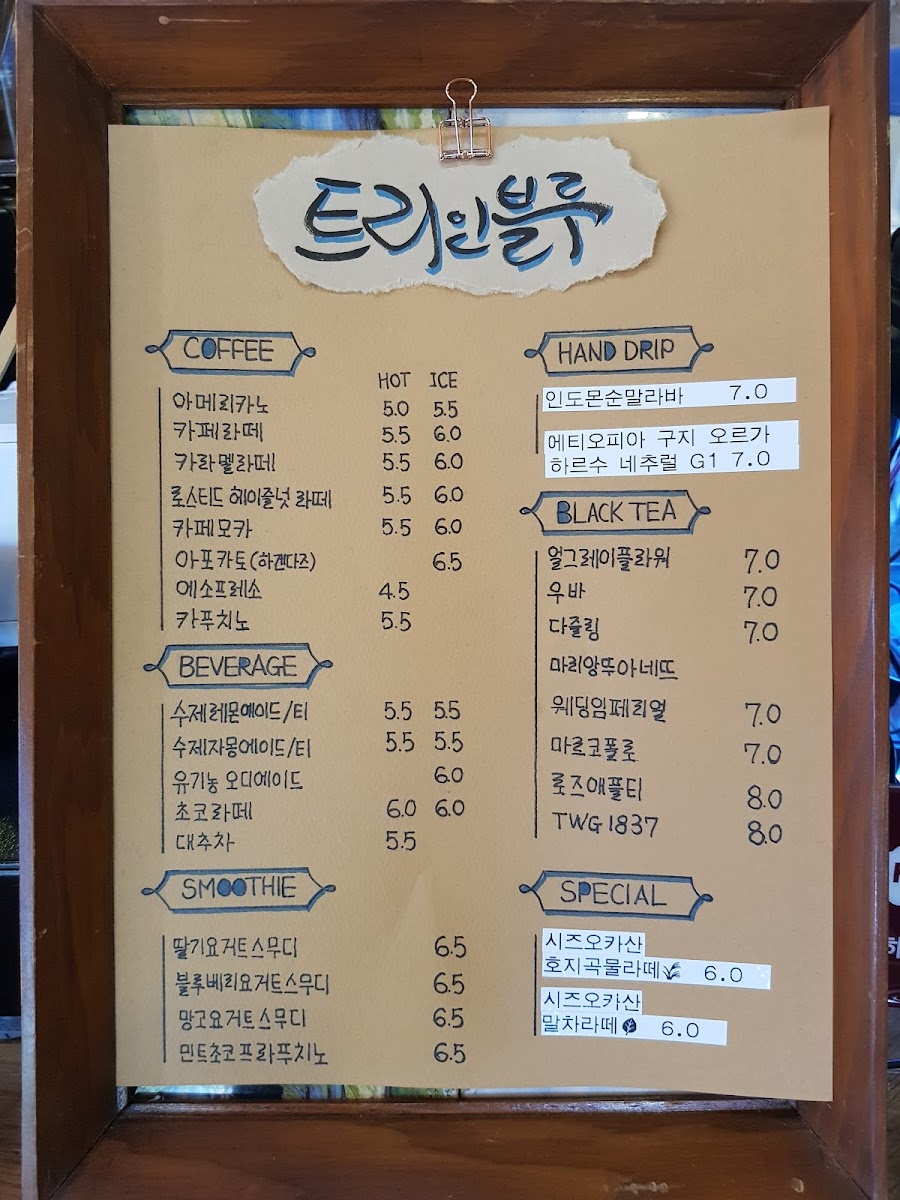 트리인블루
COFFEE
HOT ICE
아메리카노 5.0 5.5
카페라떼 5.5 6.0
카라멜라떼 5.5 6.0
로스티드 헤이즐넛 라떼 5.5 6.0
카페모카 5.5 6.0
아포카토(하겐다즈) 6.5
에소프레소 4.5
카푸치노 5.5
BEVERAGE
수제레몬에이드/티 5.5 5.5
수제자몽에이드/티 5.5 5.5
유기농 오디에이드 6.0
초코라떼 6.0 6.0
대추차 5.5
SMOOTHIE
딸기요거트스무디 6.5
블루베리요거트스무디 6.5
망고요거트스무디 6.5
민트초코프라푸치노 6.5
HAND DRIP
인도몬순말라바 7.0
에티오피아 구지 오르가
하르수 네추럴 G1 7.0
BLACK TEA
얼그레이플라워 7.0
우바 7.0
다즐링 7.0
마리앙뚜아네뜨
웨딩임페리얼 7.0
마르코폴로 7.0
로즈애플티 8.0
TWG 1837 8.0
SPECIAL
시즈오카산
호지곡물라떼 6.0
시즈오카산
말차라떼 6.0